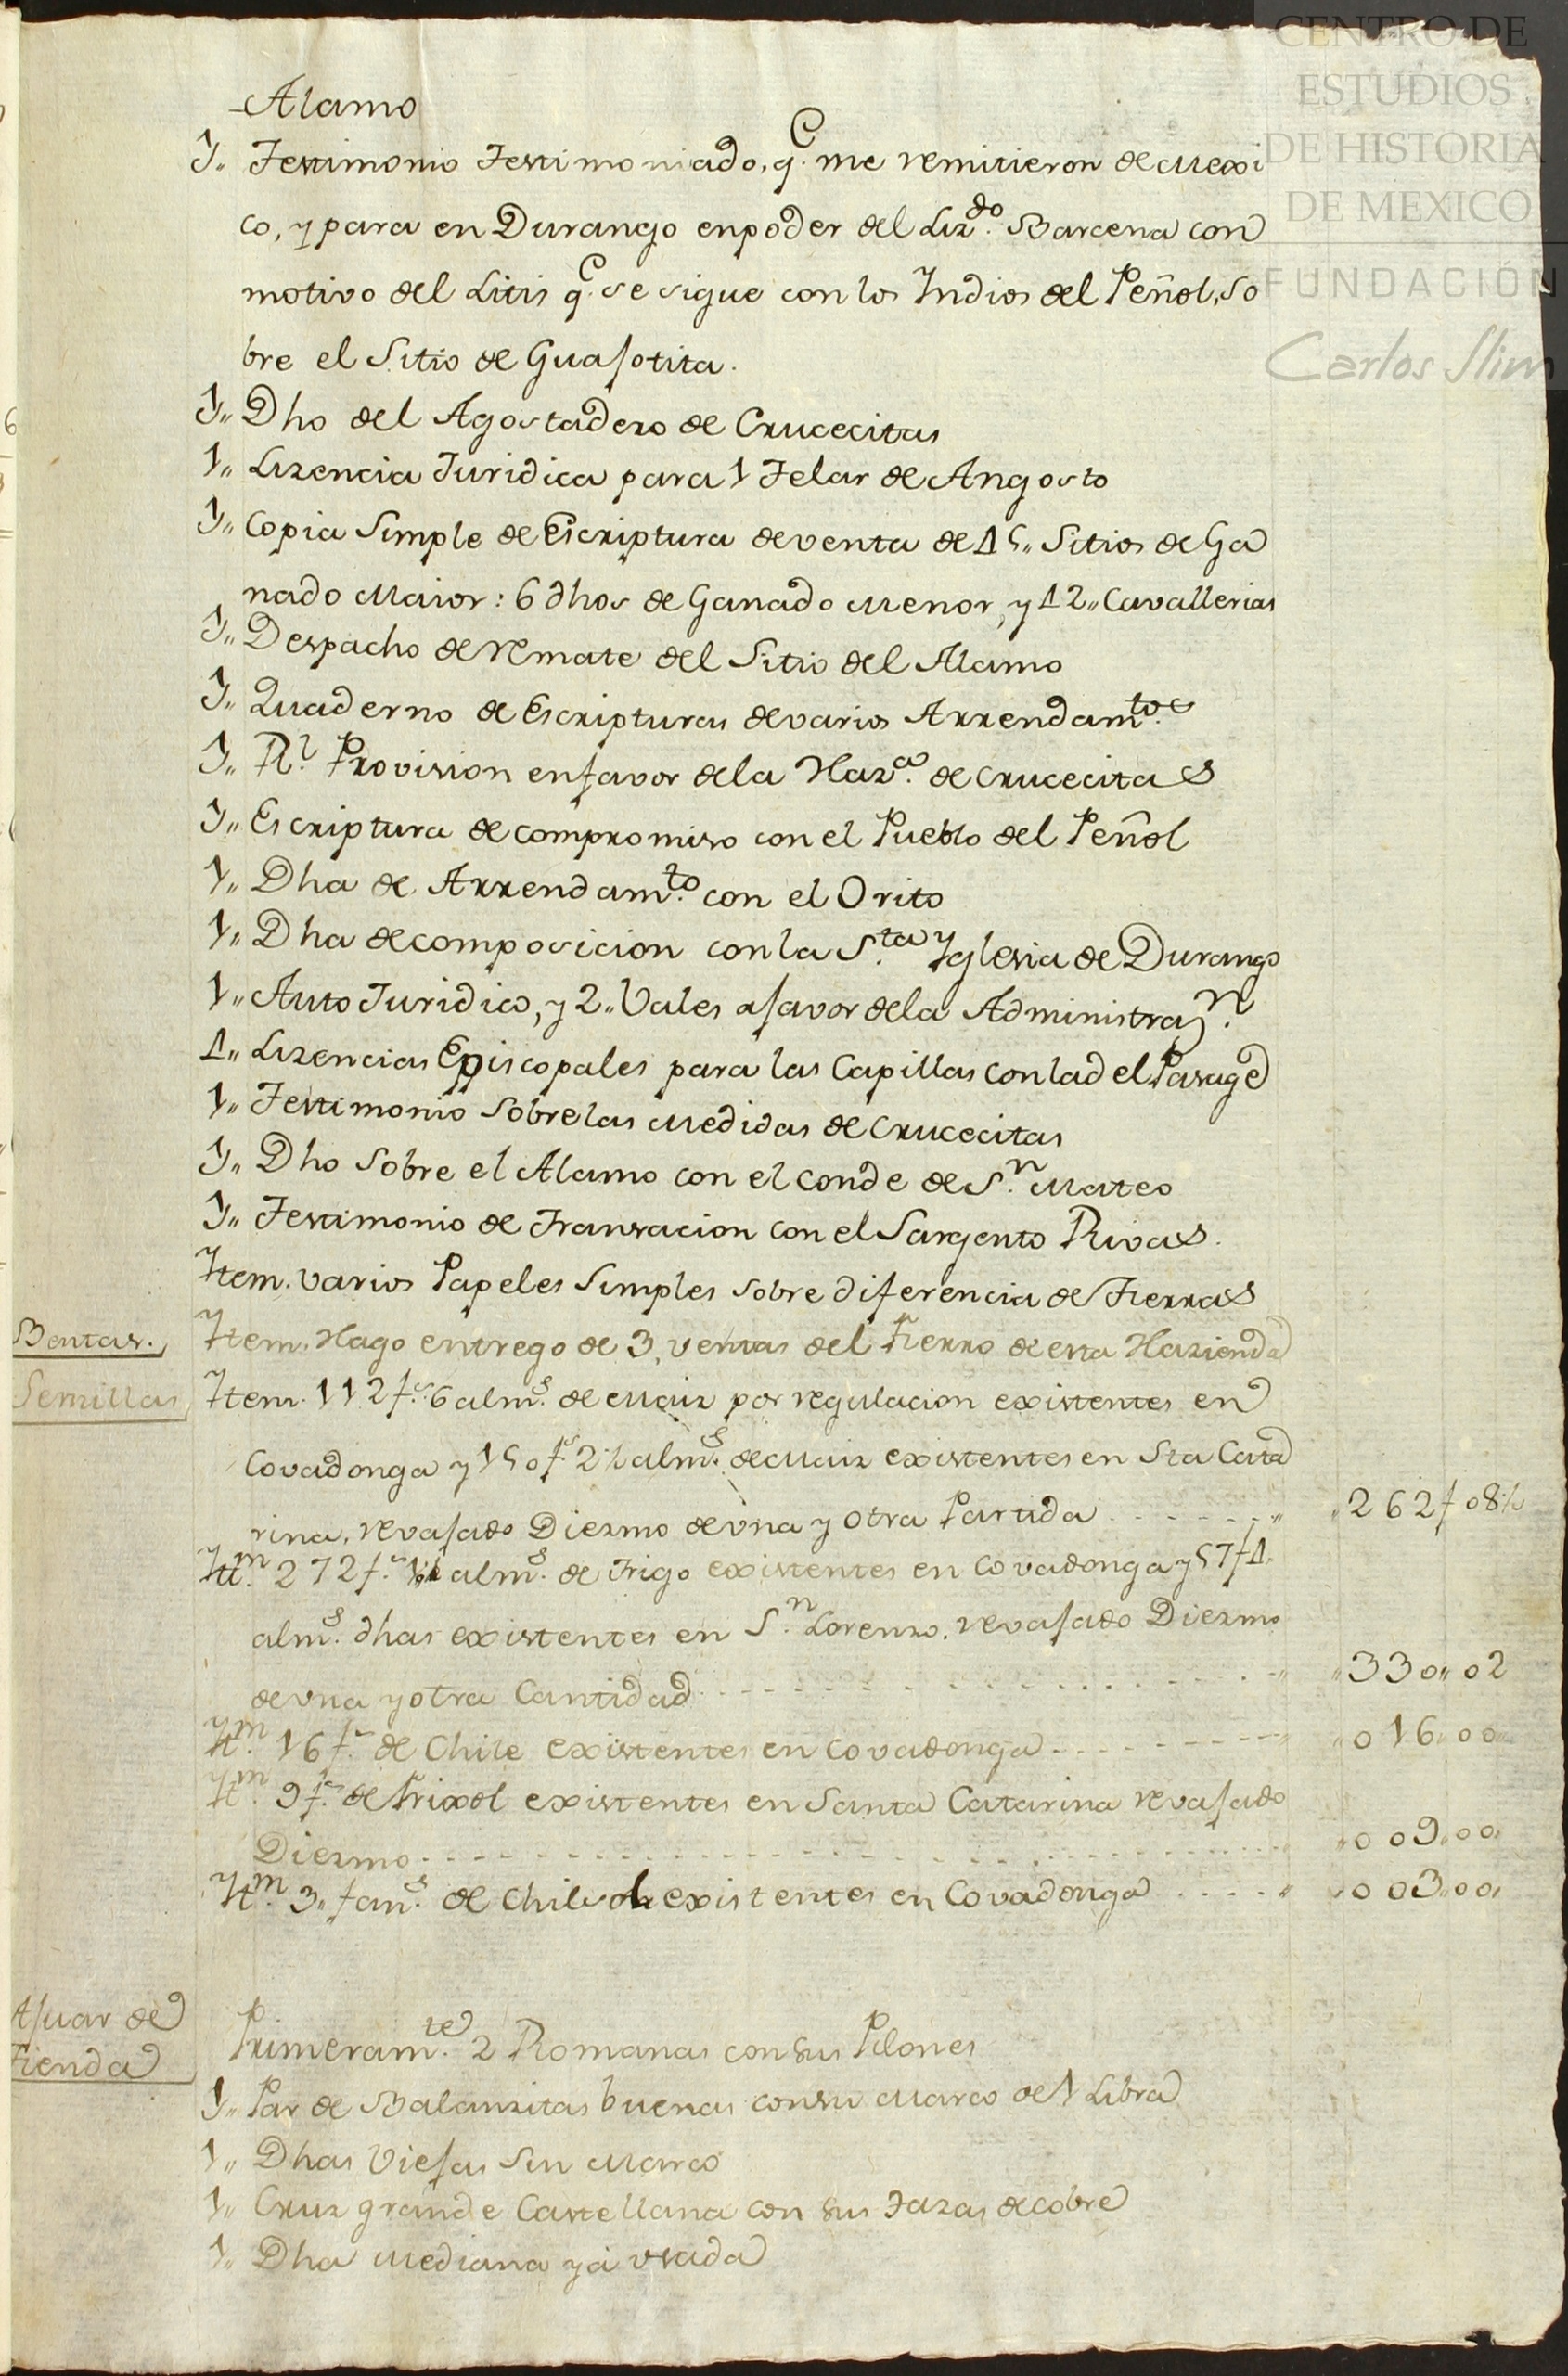 CENTRO DE
ESTUDIOS
DE HISTORIA
DE MEXICO
FUNDACIÓN
Carlos Slim
Alamo
1,, Testimonio Testimoniado, q.e me remitieron de Mexi
co, y para en Durango en poder del Liz.do Barcena con
motivo del Litis q.e se sigue con los Indios del Peñol, so
bre el Sitio de Guajotita.
1,, Dho del Agostadero de Crucecitas
1,, Lizencia Juridica para 1 Telar de Angosto
1,, Copia Simple de Escriptura de venta de 15,, Sitios de Ga
nado Maior: 6 dhos de Ganado Menor, y 12,, Cavallerias
1,, Despacho de remate del Sitio del Alamo
1,, Quaderno de Escripturas de varios Arrendam.tos
1,, R.l Provision en favor de la Haz.a de Crucecitas
1,, Escriptura de compromiso con el Pueblo del Peñol
1,, Dha de Arrendam.to con el Orito
1,, Dha de composicion con la S.ta Yglesia de Durango
1,, Auto Juridico, y 2,, Vales a favor de la Administraz.n
4,, Lizencias Episcopales para las Capillas con la del Pasage
1,, Testimonio Sobre las Medidas de Crucecitas
1,, Dho Sobre el Alamo con el Conde de S.n Mateo
1,, Testimonio de Transacion con el Sargento Rivas.
Ytem. varios Papeles Simples Sobre diferencia de Tierras
Bentas. Ytem. Hago entrego de 3, ventas del Fierro de esta Hazienda
Semillas Ytem. 112 f.s 6 alm.s de Maiz por regulacion existentes en
Covadonga y 150 f.s 2½ alm.s de Maiz existentes en Sta Cata
rina, revajado Diezmo de una y otra Partida ,,262f 08½
Yt.m 272 f.s alm.s de Trigo existentes en Covadonga y 57 f 4
alm.s dhas existentes en S.n Lorenzo, revajado Diezmo
de una y otra Cantidad ,,330,,02
Yt.m 16 f.s de Chile existentes en Covadonga ,,016,,00
Yt.m 9 f.s de Frixol existentes en Santa Catarina revajado
Diezmo ,,009,,00
Yt.m 3,, fan.s de Chile existentes en Covadonga ,,003,,00
Ajuar de
Tienda
Primeram.te 2 Romanas con sus Pilones
1,, Par de Balanzitas buenas con su Marco de 1 Libra
1,, Dhas Viejas Sin Marco
1,, Cruz grande Castellana con sus Tazas de cobre
1,, Dha Mediana ya usada